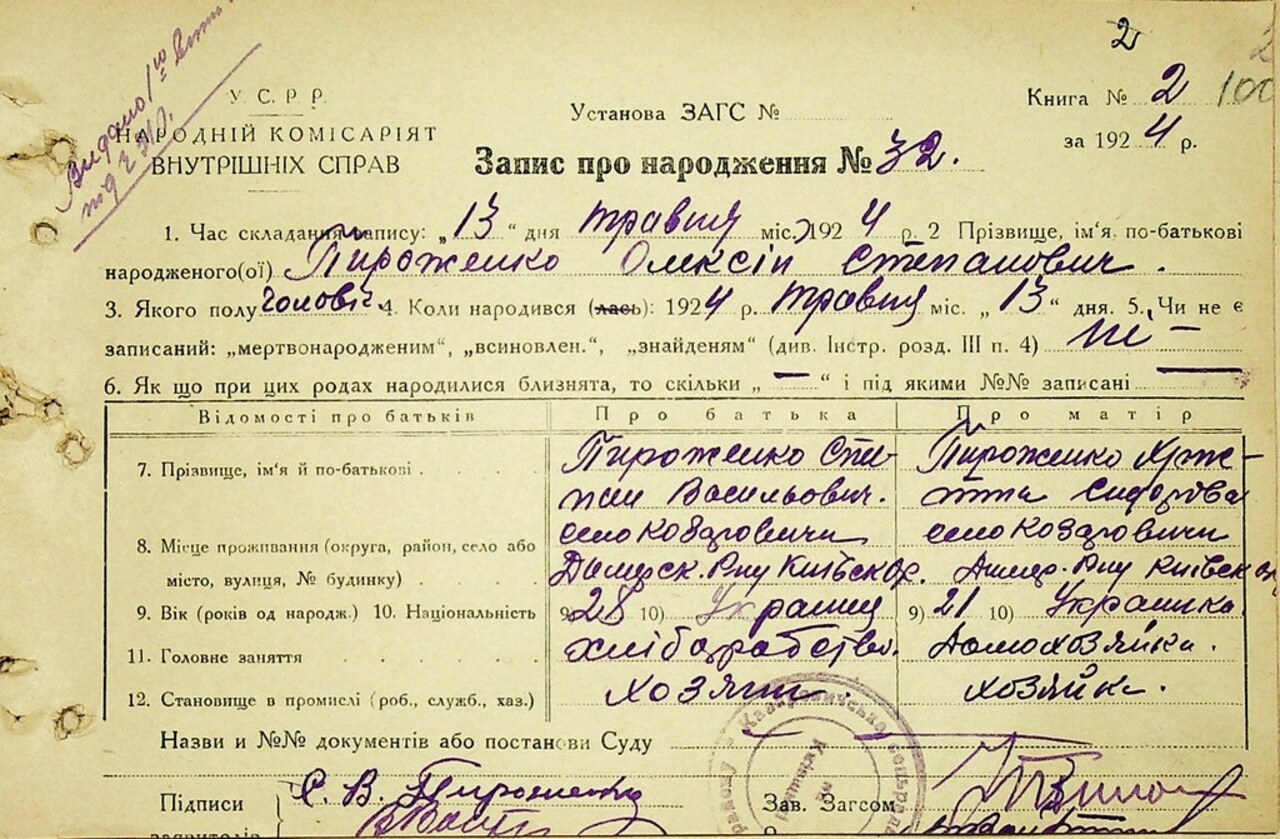 2
Видано 1го
У. С. Р. Р.
Установа ЗАГС №
Книга № 2
100
НАРОДНІЙ КОМІСАРІЯТ
за 1924 р.
ВНУТРІШНІХ СПРАВ
Запис про народження № 32.
1. Час складання запису: „13“ дня травня міс. 1924 р. 2 Прізвище, ім'я, по-батькові
народженого(ої) Пироженко Олексій Степанович.
3. Якого полу чоловіч. 4. Коли народився (лась): 1924 р. травня міс. „13“ дня. 5. Чи не є
записаний: „мертвонародженим“, „всиновлен.“, „знайденям“ (див. Інстр. розд. III п. 4) ні —
6. Як що при цих родах народилися близнята, то скільки „—“ і під якими №№ записані —
Відомості про батьків Про батька Про матір
7. Прізвище, ім'я й по-батькові Пироженко Сте- Пироженко
пан Васильович. Сидорова
8. Місце проживання (округа, район, село або село Козаровичи село Козаровичи
місто, вулиця, № будинку) Київск Київск
9. Вік (років од народж.) 10. Національність 9) 28 10) Украінец 9) 21 10) Украинка.
11. Головне заняття хліборобство. Домохозяйка.
12. Становище в промислі (роб., служб., хаз.) хозяин. хозяйка.
Назви и №№ документів або постанови Суду —
Підписи С. В. Пироженко Зав. Загсом
заявителів